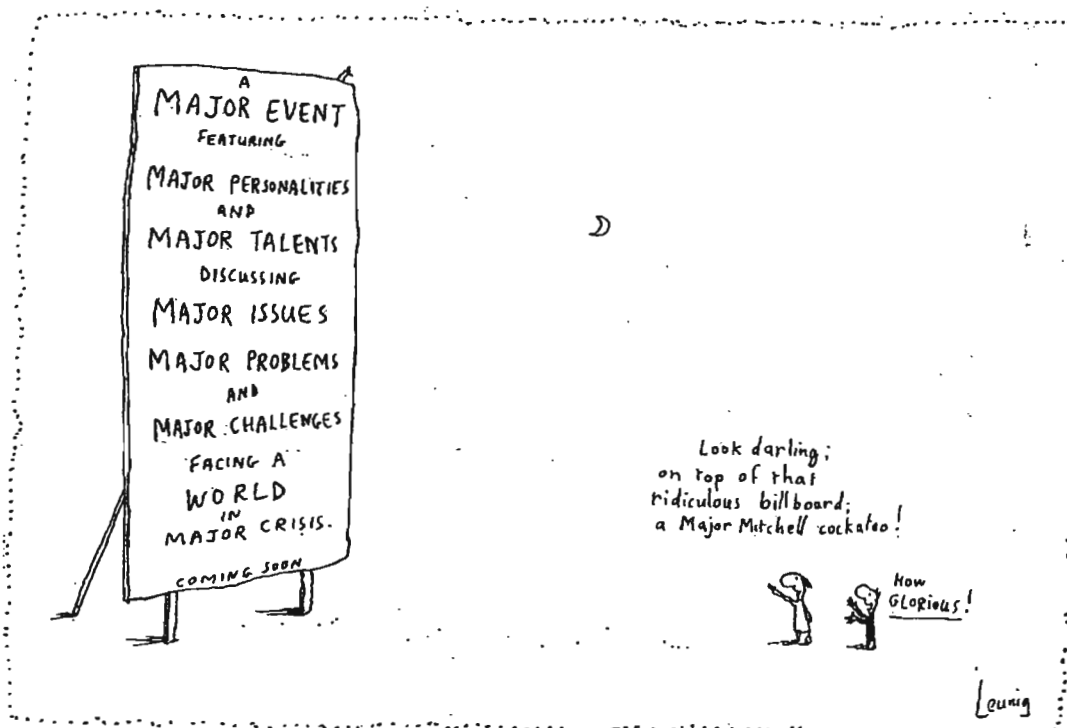 A
MAJOR EVENT
FEATURING
MAJOR PERSONALITIES
AND
MAJOR TALENTS
DISCUSSING
MAJOR ISSUES
MAJOR PROBLEMS
AND
MAJOR CHALLENGES
FACING A
WORLD
IN
MAJOR CRISIS.
COMING SOON
Look darling;
on top of that
ridiculous billboard;
a Major Mitchell cockatoo!
HOW
GLORIOUS!
Leunig